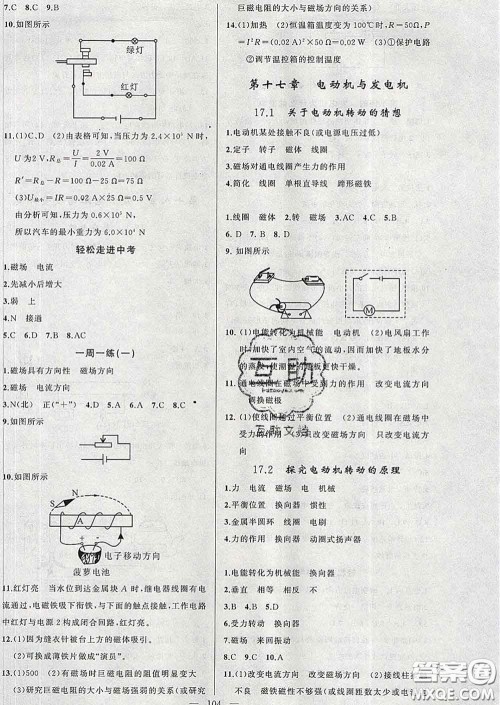 7.C  8.C  9.B
10.如图所示
绿灯
红灯
11.(1)C、D  (2)由表格可知,当压力为 2.4×10⁵ N 时,
U 为 2 V, R = U/I = 2 V/0.02 A = 100 Ω
R′=R总-R=100 Ω-25 Ω=75 Ω
由分析可知,压力为 0.6×10⁵ N,
所以汽车的最小重力为 6.0×10⁵ N
轻松走进中考
1.磁场  电流
2.先减小后增大
3.弱  上
4.N  接通
5.C  6.D  7.B  8.AC
一周一练(一)
1.磁场具有方向性  磁场
2.磁场  电流方向
3.N(北)  正(“+”)  4.D  5.A  6.D  7.A  8.C
9.如图所示
10.如图所示
S
N
A
电子移动方向
菠萝电池
11.红灯亮  当水位到达金属块 A 时,继电器线圈有电
流通过,电磁铁吸下衔铁,与下面的触点接触,工作电路
中红灯与电源 2 构成闭合回路
12.(1)因为缝衣针被台上方的磁体吸引
(2)可换成薄铁片做成“演员”。
13.(1)500  (2)有磁场时巨磁电阻的阻值明显变大
(3)研究巨磁电阻的大小与磁场强弱的关系(或研究
巨磁电阻的大小与磁场方向的关系)
14.(1)加热  (2)恒温箱温度变为 100℃时,R=50 Ω,P
=I²R=(0.02 A)²×50 Ω=0.02 W  (3)①保护电路
②调节温控箱的控制温度
第十七章  电动机与发电机
17.1  关于电动机转动的猜想
1.电动机某处接触不良(或电源电压过低)
2.定子  转子  磁体  线圈
3.磁场对通电线圈产生力的作用
4.简化  线圈  单根直导线  蹄形磁铁
1.线圈  磁体  2.转  磁场  3.AC  4.C  5.C
6.D  7.B  8.D
9.如图所示
M
10.(1)电能转化为机械能  电动机  (2)电风扇工作
时,加快了室内空气的流动,加快了地板水分
互助
互助文墙
12.(1)使线圈越过平衡位置  (2)通电线圈在磁场中
受力的作用  (3)只改变磁场方向  只改变电流方
向
17.2  探究电动机转动的原理
1.力  电流  磁场  电  机械
2.平衡位置  换向器  惯性
3.金属半圆环  线圈  电刷
4.力的作用  换向器  动圈式扬声器
1.电能转化为机械能  换向器
2.垂直  相等  不在
3.D  4.B  5.C
6.受力转动  换向器
7.磁场  来回振动
8.C  9.C  10.A
11.(1)改变电流方向  改变磁场方向  (2)接线柱接
不良  磁铁磁性不够强(或线圈匝数太少或电
104